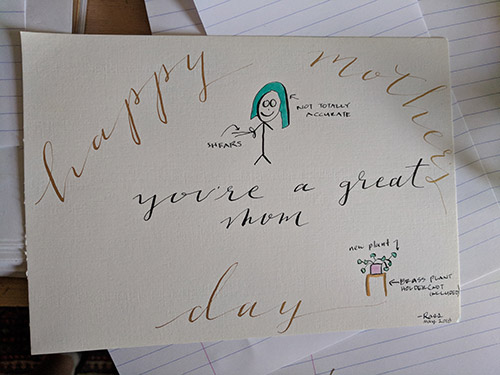 happy mother's
← NOT TOTALLY
ACCURATE
SHEARS
you're a great
mom
new plant
← BRASS PLANT
HOLDER (NOT
INCLUDED)
day
MAY 2018